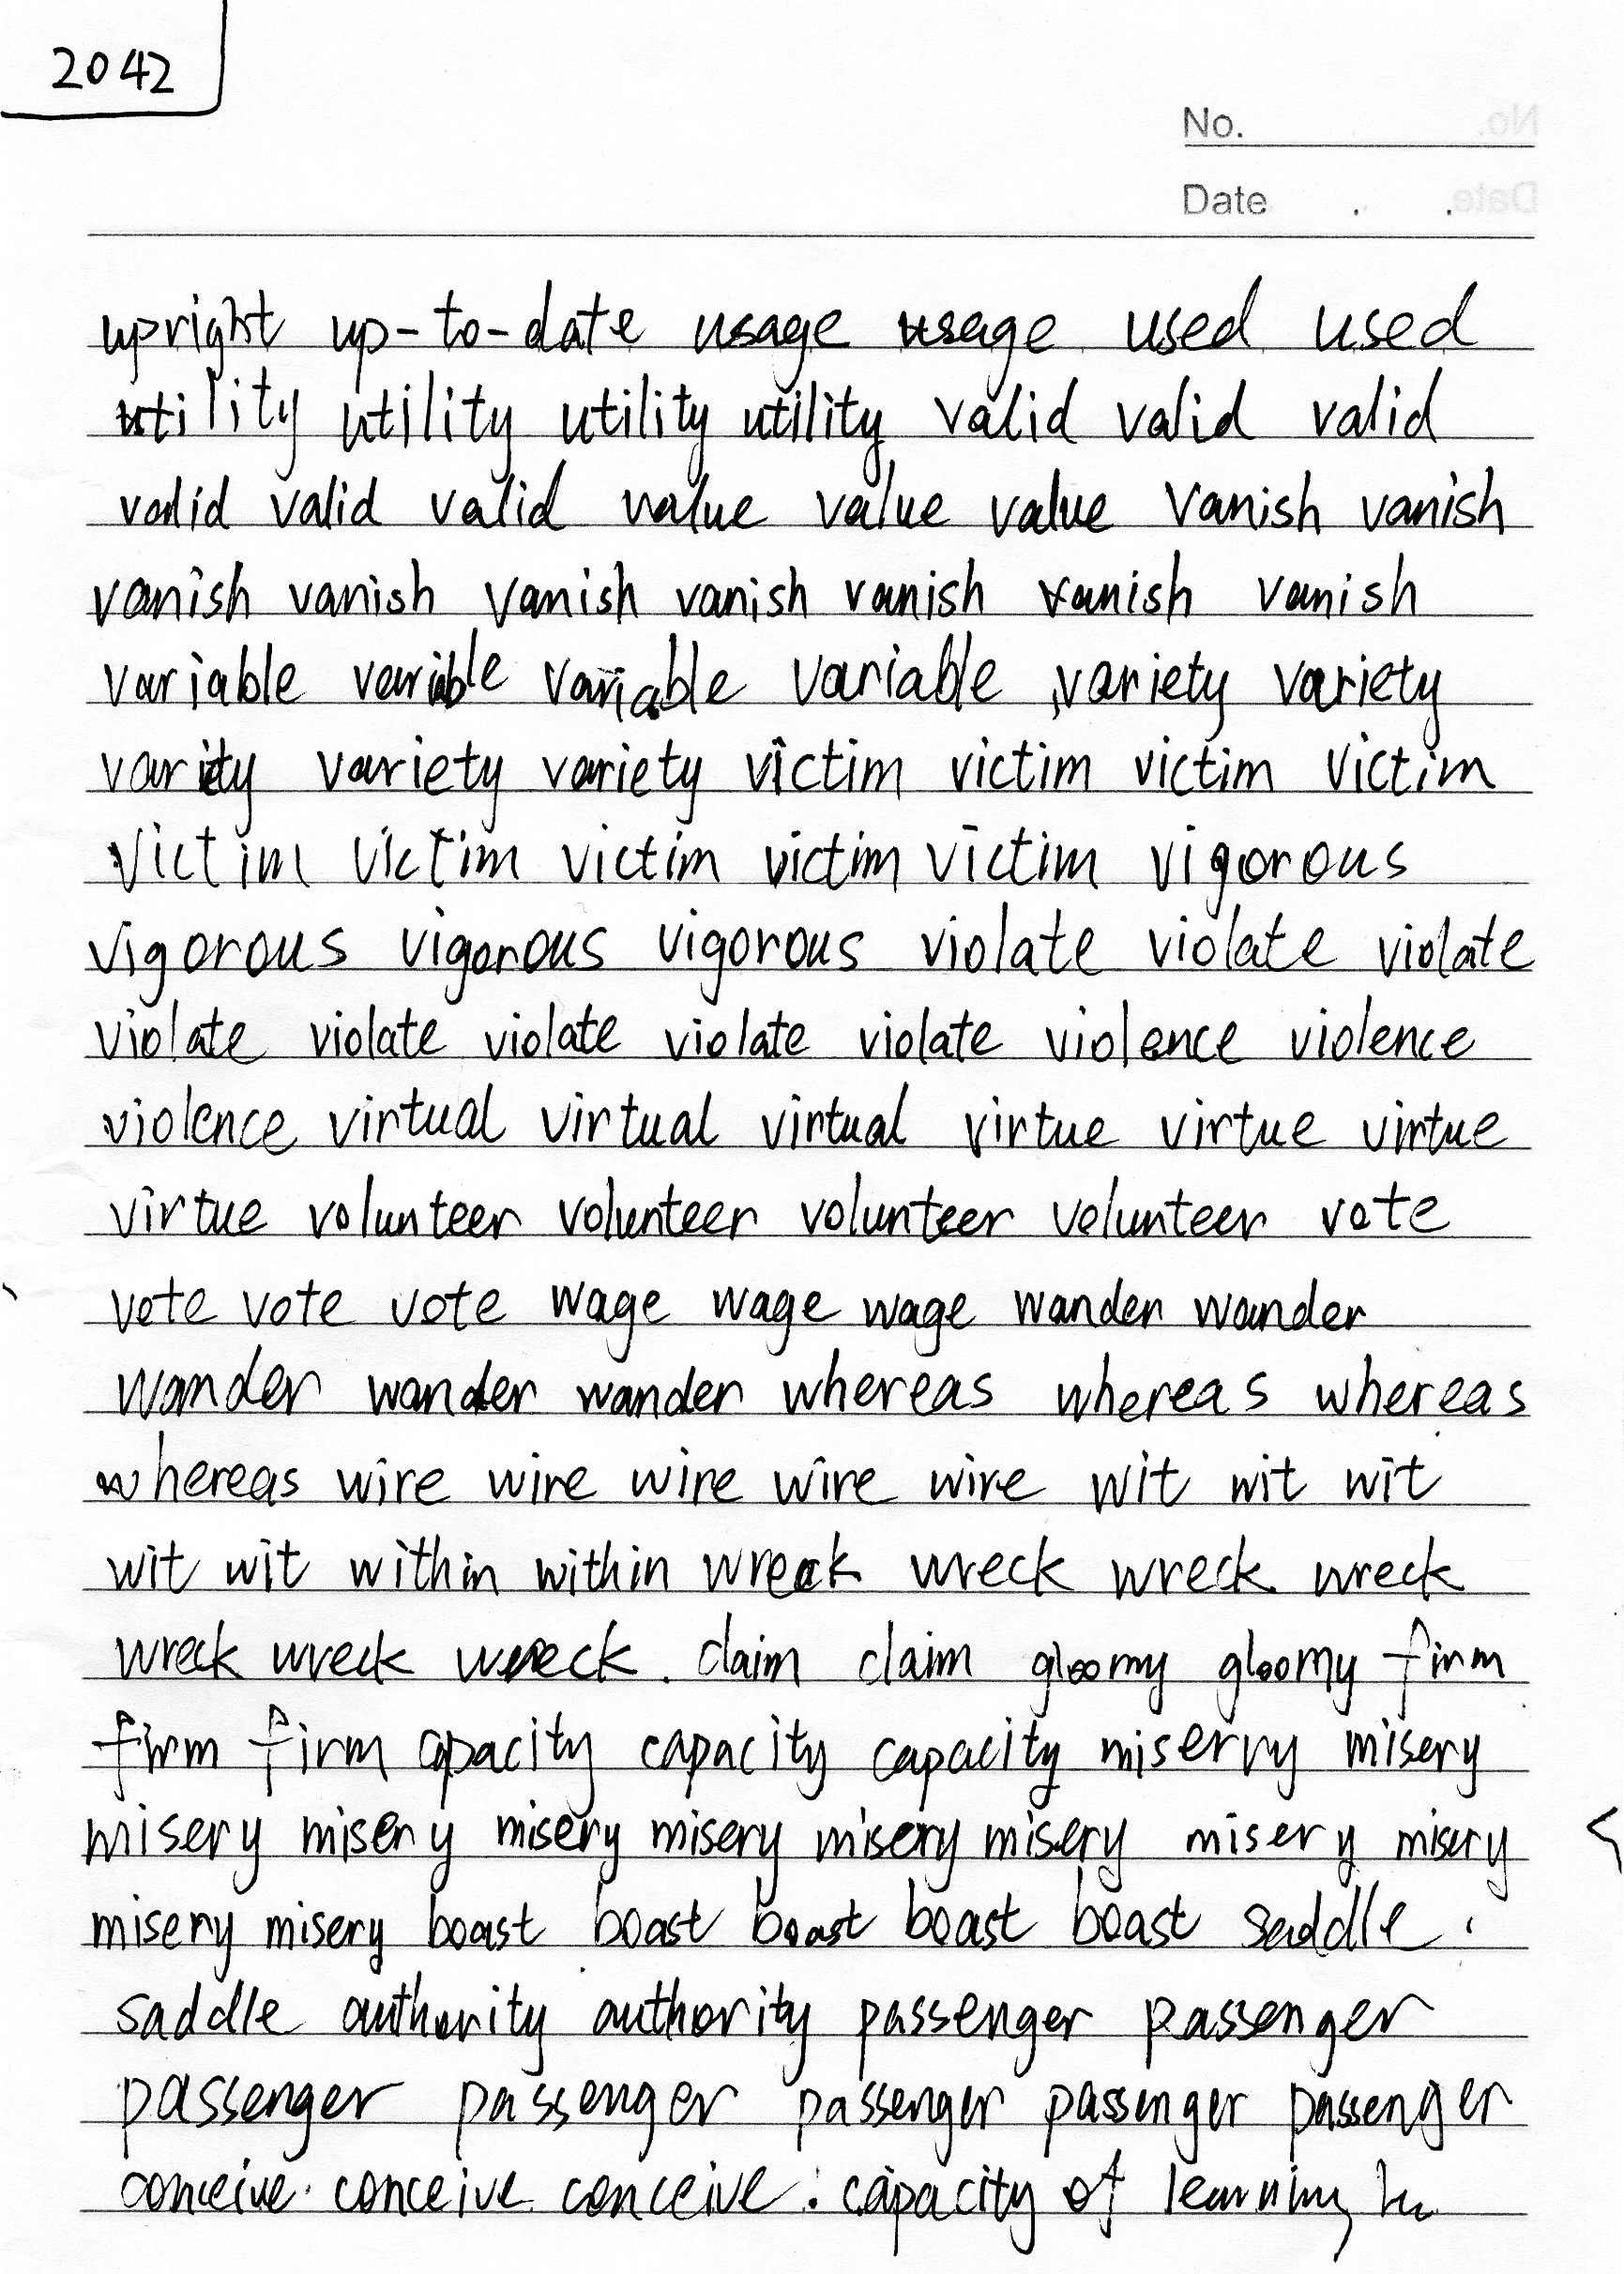 2042
No.
Date . .
upright up-to-date usage usage used used
utility utility utility utility valid valid valid
valid valid valid value value value vanish vanish
vanish vanish vanish vanish vanish vanish vanish
variable variable variable variable variety variety
varity variety variety victim victim victim victim
victim victim victim victim victim vigorous
vigorous vigorous vigorous violate violate violate
violate violate violate violate violate violence violence
violence virtual virtual virtual virtue virtue virtue
virtue volunteer volunteer volunteer volunteer vote
vote vote vote wage wage wage wander wander
wander wander wander whereas whereas whereas
whereas wire wire wire wire wire wit wit wit
wit wit within within wreck wreck wreck wreck
wreck wreck wreck. claim claim gloomy gloomy firm
firm firm capacity capacity capacity miserry misery
misery misery misery misery misery misery misery misery
misery misery boast boast boast boast boast saddle.
saddle authority authority passenger passenger
passenger passenger passenger passenger passenger
conceive. conceive conceive. capacity of learning